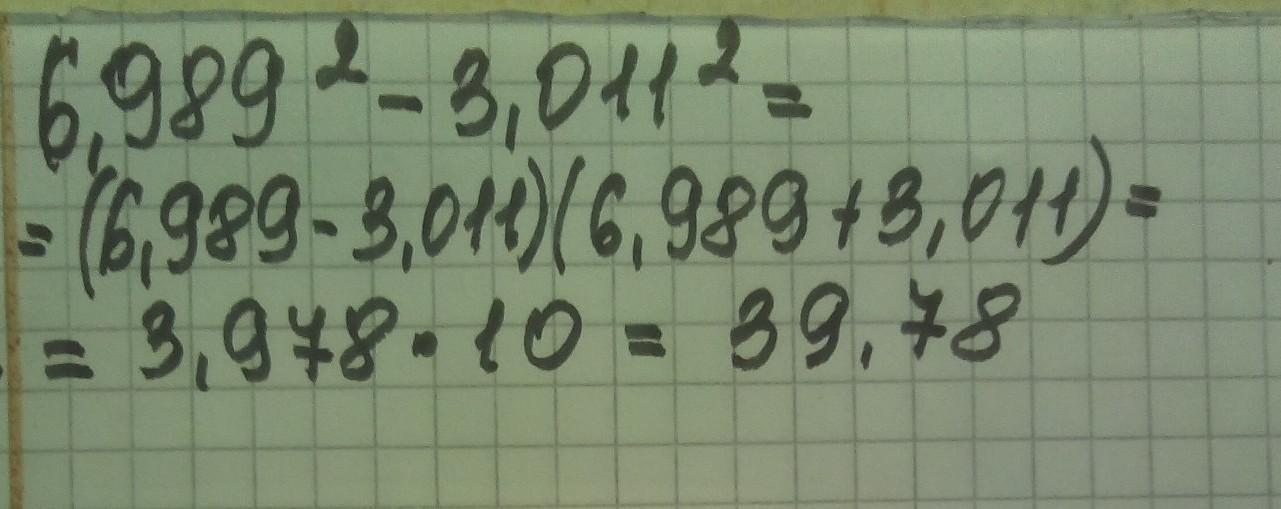 6,989² - 3,011² =
= (6,989 - 3,011)(6,989 + 3,011) =
= 3,978 · 10 = 39,78